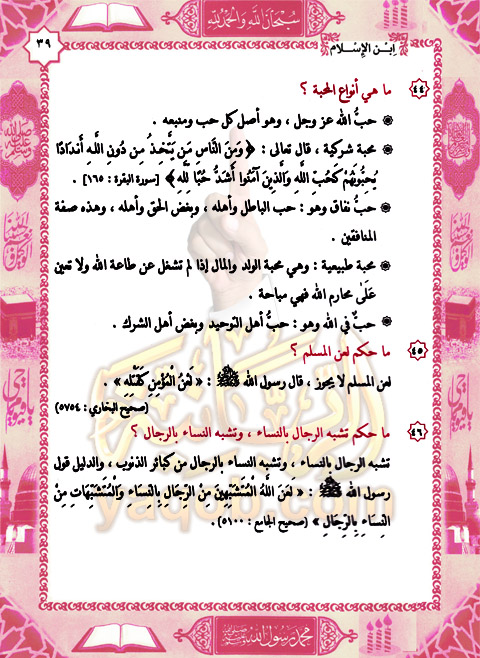 سُبْحَانَ اللَّهِ وَالْحَمْدُ لِلَّهِ
ابْنُ الإِسْلَام
٣٩
٤٤ ما هي أنواع المحبة ؟
حبُّ الله عز وجل ، وهو أصل كل حب ومنبعه .
محبة شركية ، قال تعالى : ﴿ وَمِنَ النَّاسِ مَن يَتَّخِذُ مِن دُونِ اللَّهِ أَندَادًا
يُحِبُّونَهُمْ كَحُبِّ اللَّهِ وَالَّذِينَ آمَنُوا أَشَدُّ حُبًّا لِلَّهِ ﴾ [سورة البقرة : ١٦٥] .
حبُّ نفاق وهو : حب الباطل وأهله ، وبغض الحق وأهله ، وهذه صفة
المنافقين .
محبة طبيعية : وهي محبة الولد والمال إذا لم تشغل عن طاعة الله ولا تعين
عَلَىٰ محارم الله فهي مباحة .
حبٌّ في الله وهو : حبُّ أهل التوحيد وبغض أهل الشرك .
٤٥ ما حكم لعن المسلم ؟
لعن المسلم لا يجوز ، قال رسول الله ﷺ : « لَعْنُ الْمُؤْمِنِ كَقَتْلِهِ » .
(صحيح البخاري : ٥٧٥٤)
٤٦ ما حكم تشبه الرجال بالنساء ، وتشبه النساء بالرجال ؟
تشبه الرجال بالنساء ، وتشبه النساء بالرجال من كبائر الذنوب ، والدليل قول
رسول الله ﷺ : « لَعَنَ اللَّهُ الْمُتَشَبِّهِينَ مِنَ الرِّجَالِ بِالنِّسَاءِ وَالْمُتَشَبِّهَاتِ مِنَ
النِّسَاءِ بِالرِّجَالِ » (صحيح الجامع : ٥١٠٠) .
yaqob.com
محمد رسول الله ﷺ